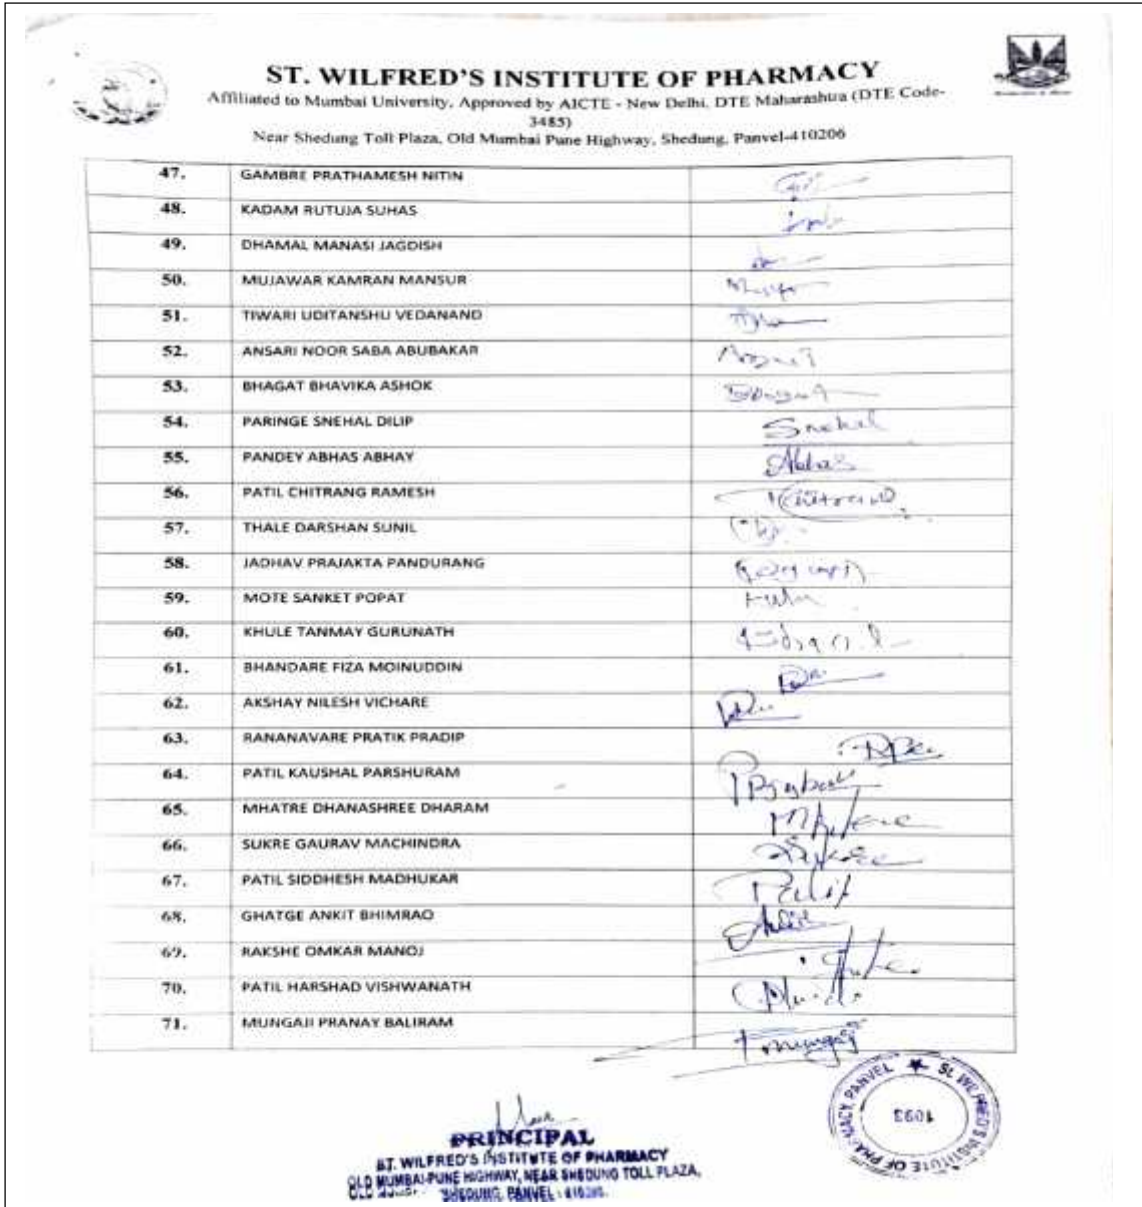 ST. WILFRED'S INSTITUTE OF PHARMACY
Affiliated to Mumbai University, Approved by AICTE - New Delhi, DTE Maharashtra (DTE Code-
3485)
Near Shedung Toll Plaza, Old Mumbai Pune Highway, Shedung, Panvel-410206
47. GAMBRE PRATHAMESH NITIN
48. KADAM RUTUJA SUHAS
49. DHAMAL MANASI JAGDISH
50. MUJAWAR KAMRAN MANSUR
51. TIWARI UDITANSHU VEDANAND
52. ANSARI NOOR SABA ABUBAKAR
53. BHAGAT BHAVIKA ASHOK
54. PARINGE SNEHAL DILIP Snehal
55. PANDEY ABHAS ABHAY Abhas
56. PATIL CHITRANG RAMESH Chitrang
57. THALE DARSHAN SUNIL
58. JADHAV PRAJAKTA PANDURANG
59. MOTE SANKET POPAT
60. KHULE TANMAY GURUNATH
61. BHANDARE FIZA MOINUDDIN
62. AKSHAY NILESH VICHARE
63. RANANAVARE PRATIK PRADIP
64. PATIL KAUSHAL PARSHURAM
65. MHATRE DHANASHREE DHARAM
66. SUKRE GAURAV MACHINDRA
67. PATIL SIDDHESH MADHUKAR
68. GHATGE ANKIT BHIMRAO
69. RAKSHE OMKAR MANOJ
70. PATIL HARSHAD VISHWANATH
71. MUNGAJI PRANAY BALIRAM
PRINCIPAL
ST. WILFRED'S INSTITUTE OF PHARMACY
OLD MUMBAI-PUNE HIGHWAY, NEAR SHEDUNG TOLL PLAZA,
SHEDUNG, PANVEL - 410206.
ST. WILFRED'S INSTITUTE OF PHARMACY, PANVEL
1093